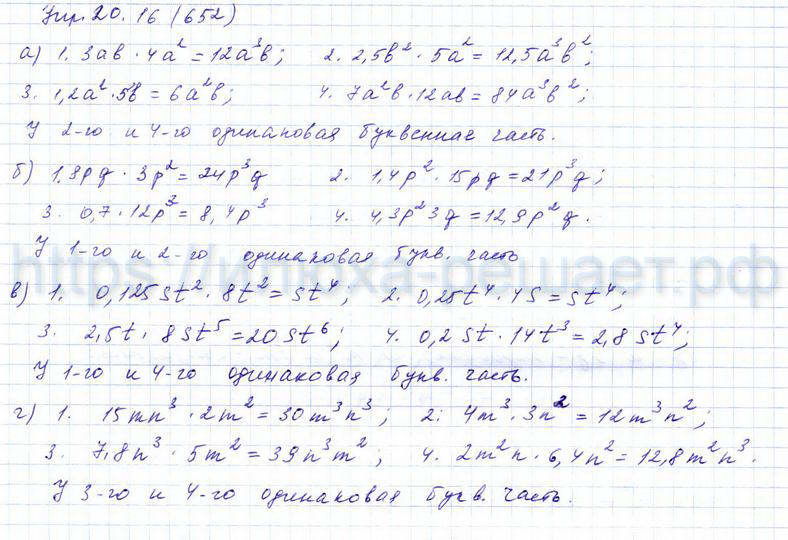 Упр. 20.16 (652)
а) 1. 3ab · 4a² = 12a³b; 2. 2,5b² · 5a² = 12,5a³b²;
3. 1,2a² · 5b = 6a²b; 4. 7a²b · 12ab = 84a³b²;
У 2-го и 4-го одинаковая буквенная часть.
б) 1. 8pq · 3p² = 24p³q 2. 1,4p² · 15pq = 21p³q;
3. 0,7 · 12p³ = 8,4p³ 4. 4,3p² 3q = 12,9p²q.
У 1-го и 2-го одинаковая букв. часть
https://клюха-решает.рф
в) 1. 0,125st² · 8t² = st⁴; 2. 0,25t⁴ · 4s = st⁴;
3. 2,5t · 8st⁵ = 20st⁶; 4. 0,2st · 14t³ = 2,8st⁴;
У 1-го и 4-го одинаковая букв. часть.
г) 1. 15mn³ · 2m² = 30m³n³; 2: 4m³ · 3n² = 12m³n²;
3. 7,8n³ · 5m² = 39n³m²; 4. 2m²n · 6,4n² = 12,8m²n³.
У 3-го и 4-го одинаковая букв. часть.